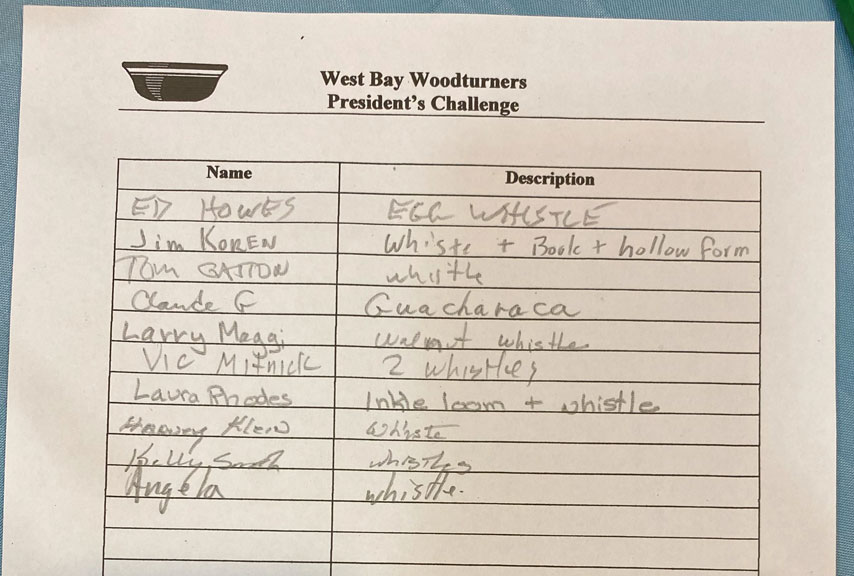 West Bay Woodturners
President's Challenge
Name Description
ED HOWES EGG WHISTLE
Jim KOREN Whiste + Book + hollow form
Tom GATTON whistle
Claude G Guacharaca
Larry Maggi walnut whistle
VIC MITNICK 2 whistles
Laura Rhodes Inkle loom + whistle
Harvey Klein Whiste
Kelly Smith whistles
Angela whistle.